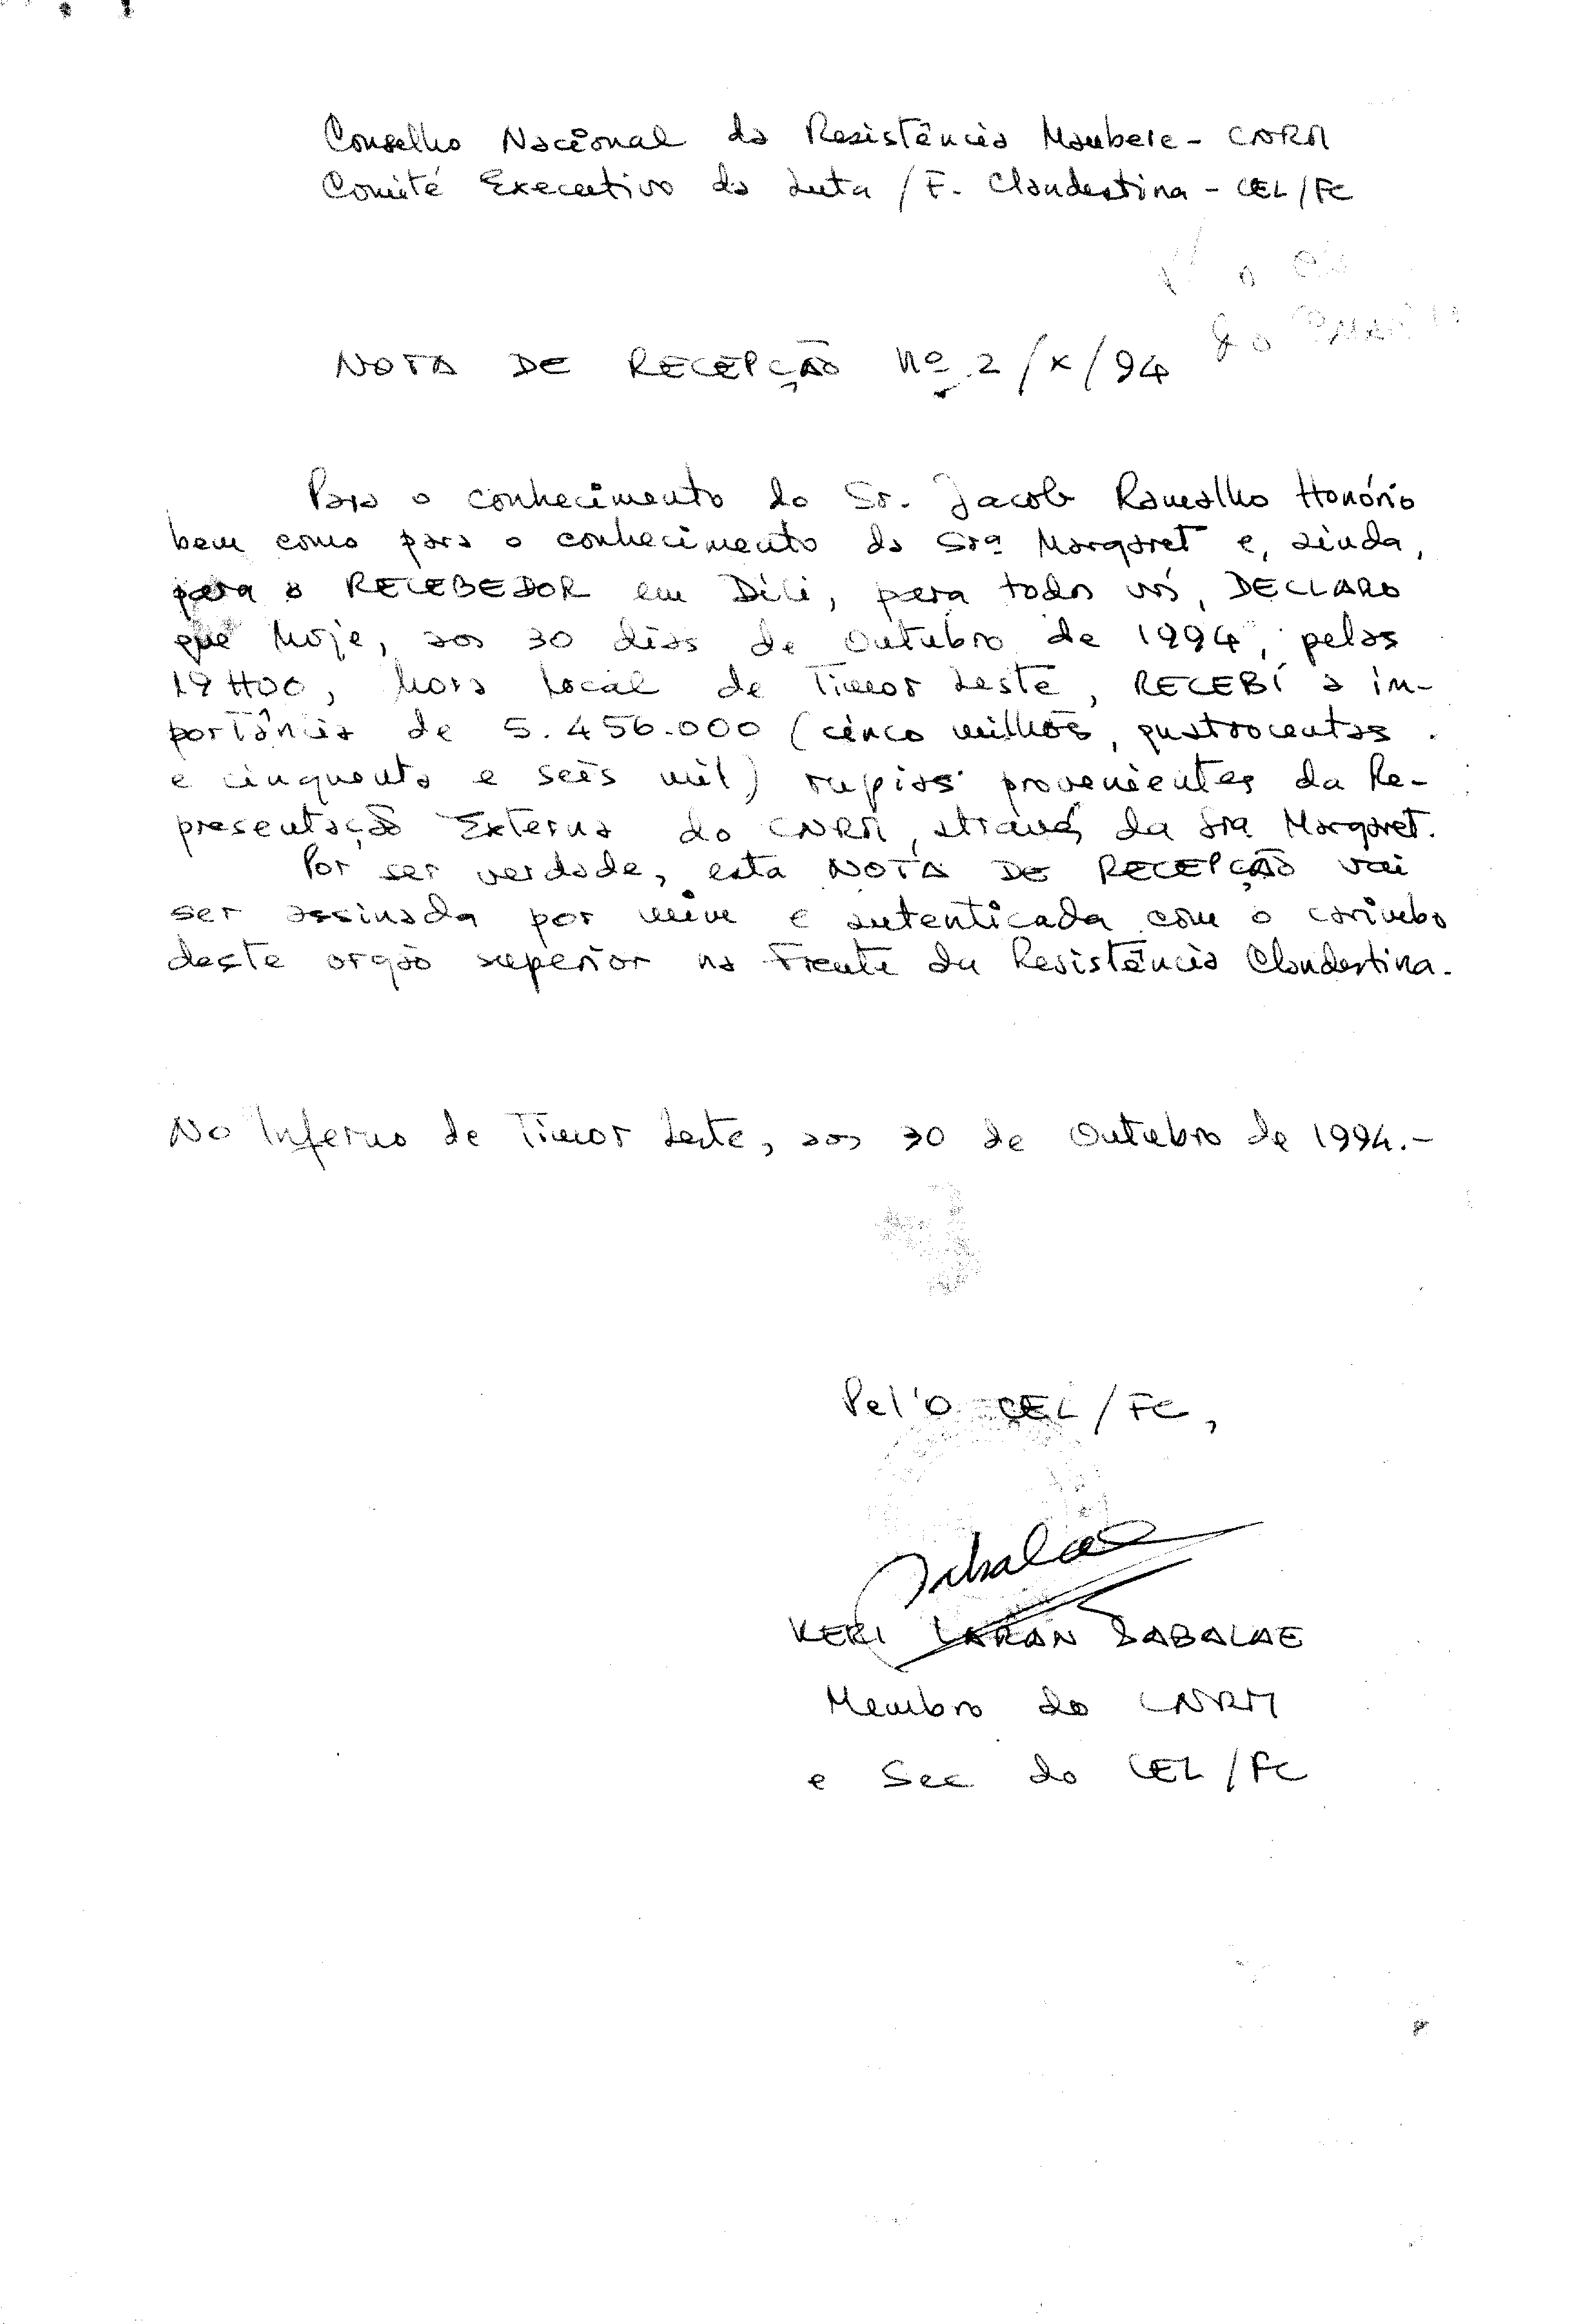 Conselho Nacional da Resistência Maubere - CNRM
Comité Executivo da Luta / F. Clandestina - CEL/FC
NOTA DE RECEPÇÃO Nº 2/X/94
Para o conhecimento do Sr. Jacob Ramalho Honório
bem como para o conhecimento da Srª Margaret e, ainda,
para o RECEBEDOR em Dili, para todos vós, DECLARO
que hoje, aos 30 dias de Outubro de 1994, pelas
19H00, hora local de Timor Leste, RECEBÍ a im-
portância de 5.456.000 (cinco milhões, quatrocentas
e cinquenta e seis mil) rupias provenientes da Re-
presentação Externa do CNRM, através da Sra Margaret.
Por ser verdade, esta NOTA DE RECEPÇÃO vai
ser assinada por mim e autenticada com o carimbo
deste orgão superior na Frente da Resistência Clandestina.
No Inferno de Timor Leste, aos 30 de Outubro de 1994.-
Pel'O CEL/FC,
Sabalae
KERI LARAN SABALAE
Membro do CNRM
e Sec do CEL/FC